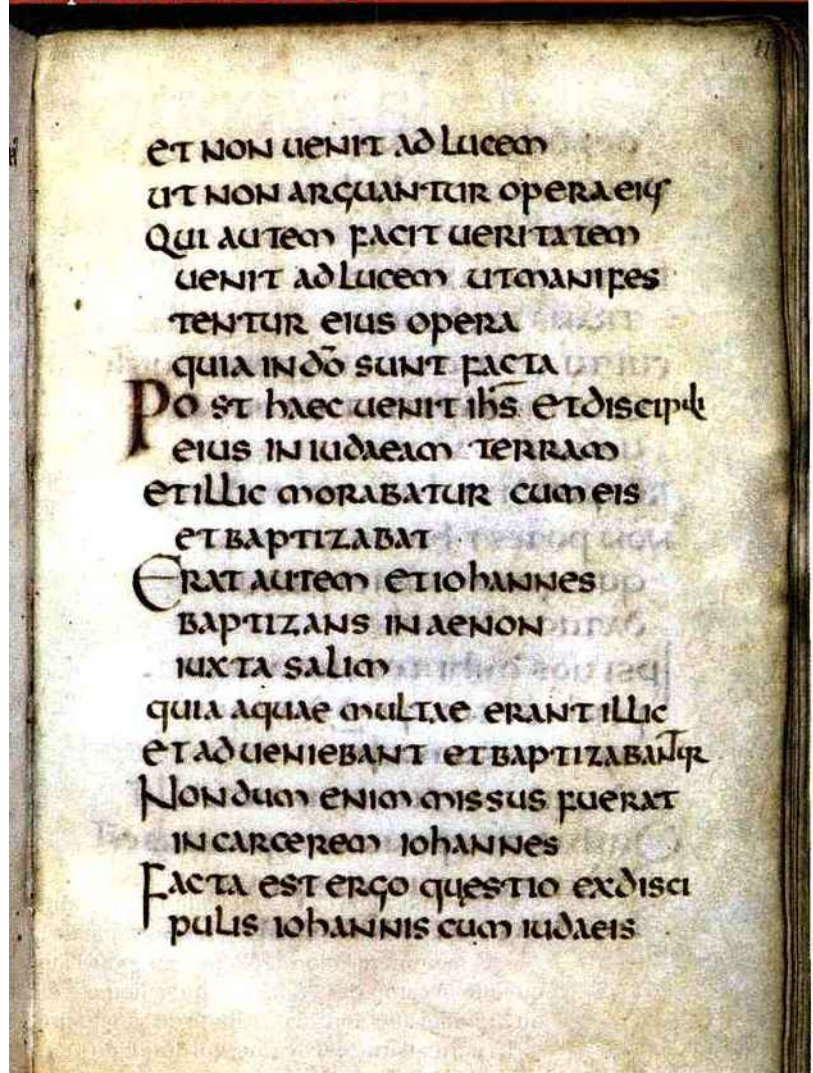 et non uenit ad lucem
ut non arguantur opera eius
Qui autem facit ueritatem
uenit ad lucem ut manifes
tentur eius opera
quia in dō sunt facta
Post haec uenit ihs̄ et discipuli
eius in iudaeam terram
et illic morabatur cum eis
et baptizabat
Erat autem et iohannes
baptizans in aenon
iuxta salim
quia aquae multae erant illic
et adueniebant et baptizabantur
Nondum enim missus fuerat
in carcerem iohannes
Facta est ergo quęstio ex disci
pulis iohannis cum iudaeis